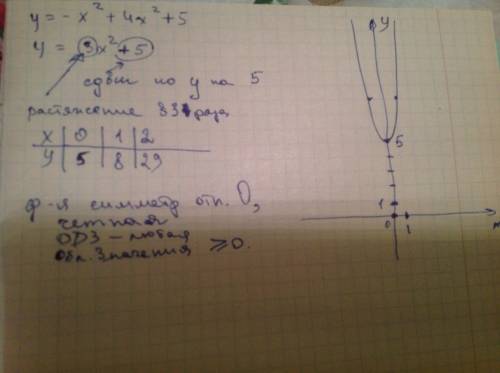 y = -x² + 4x² + 5
y = 3x² + 5
сдвиг по y на 5
растяжение в 3 раза
x | 0 | 1 | 2
y | 5 | 8 | 29
ф-я симметр отн. 0,
четная
ОДЗ – любая
обл. значения ≥ 0.
y
5
1
0 1
x